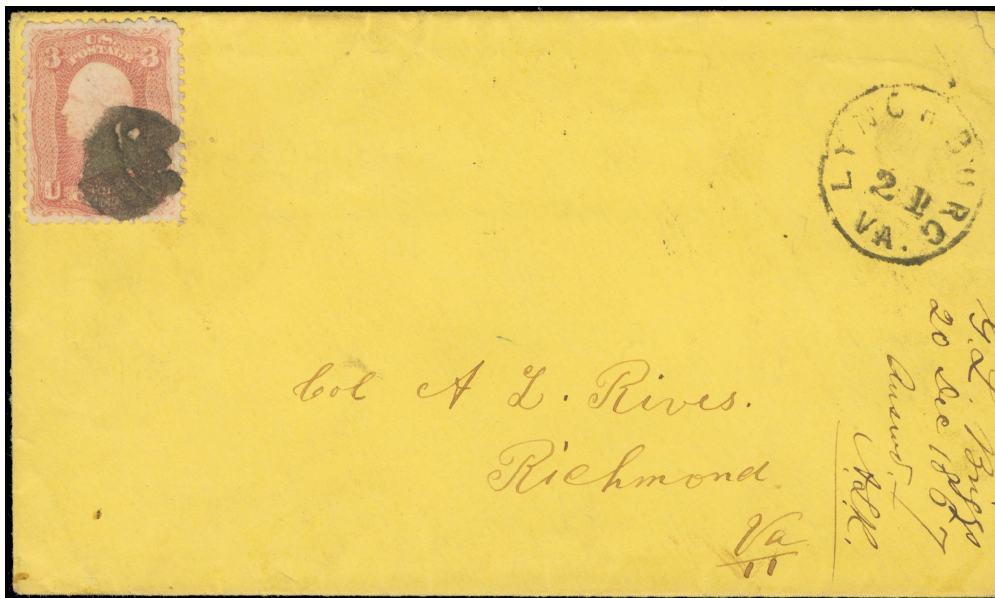 3 U.S. 3
POSTAGE
U
LYNCHBURG
21
VA.
Col A L. Rives.
Richmond
Va
G. L. Briggs
20 Dec 1867
Answd.
ALR.